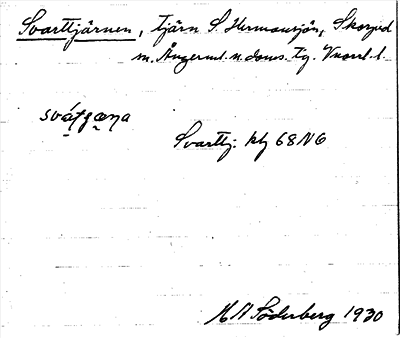 Svarttjärnen, tjärn S. Hermansjön, Skorped
m. Ångerml. n. doms. tg. Vnorrl. l.
svátʒæṇa
Svarttj: kbl 68 N6
K A Söderberg 1930